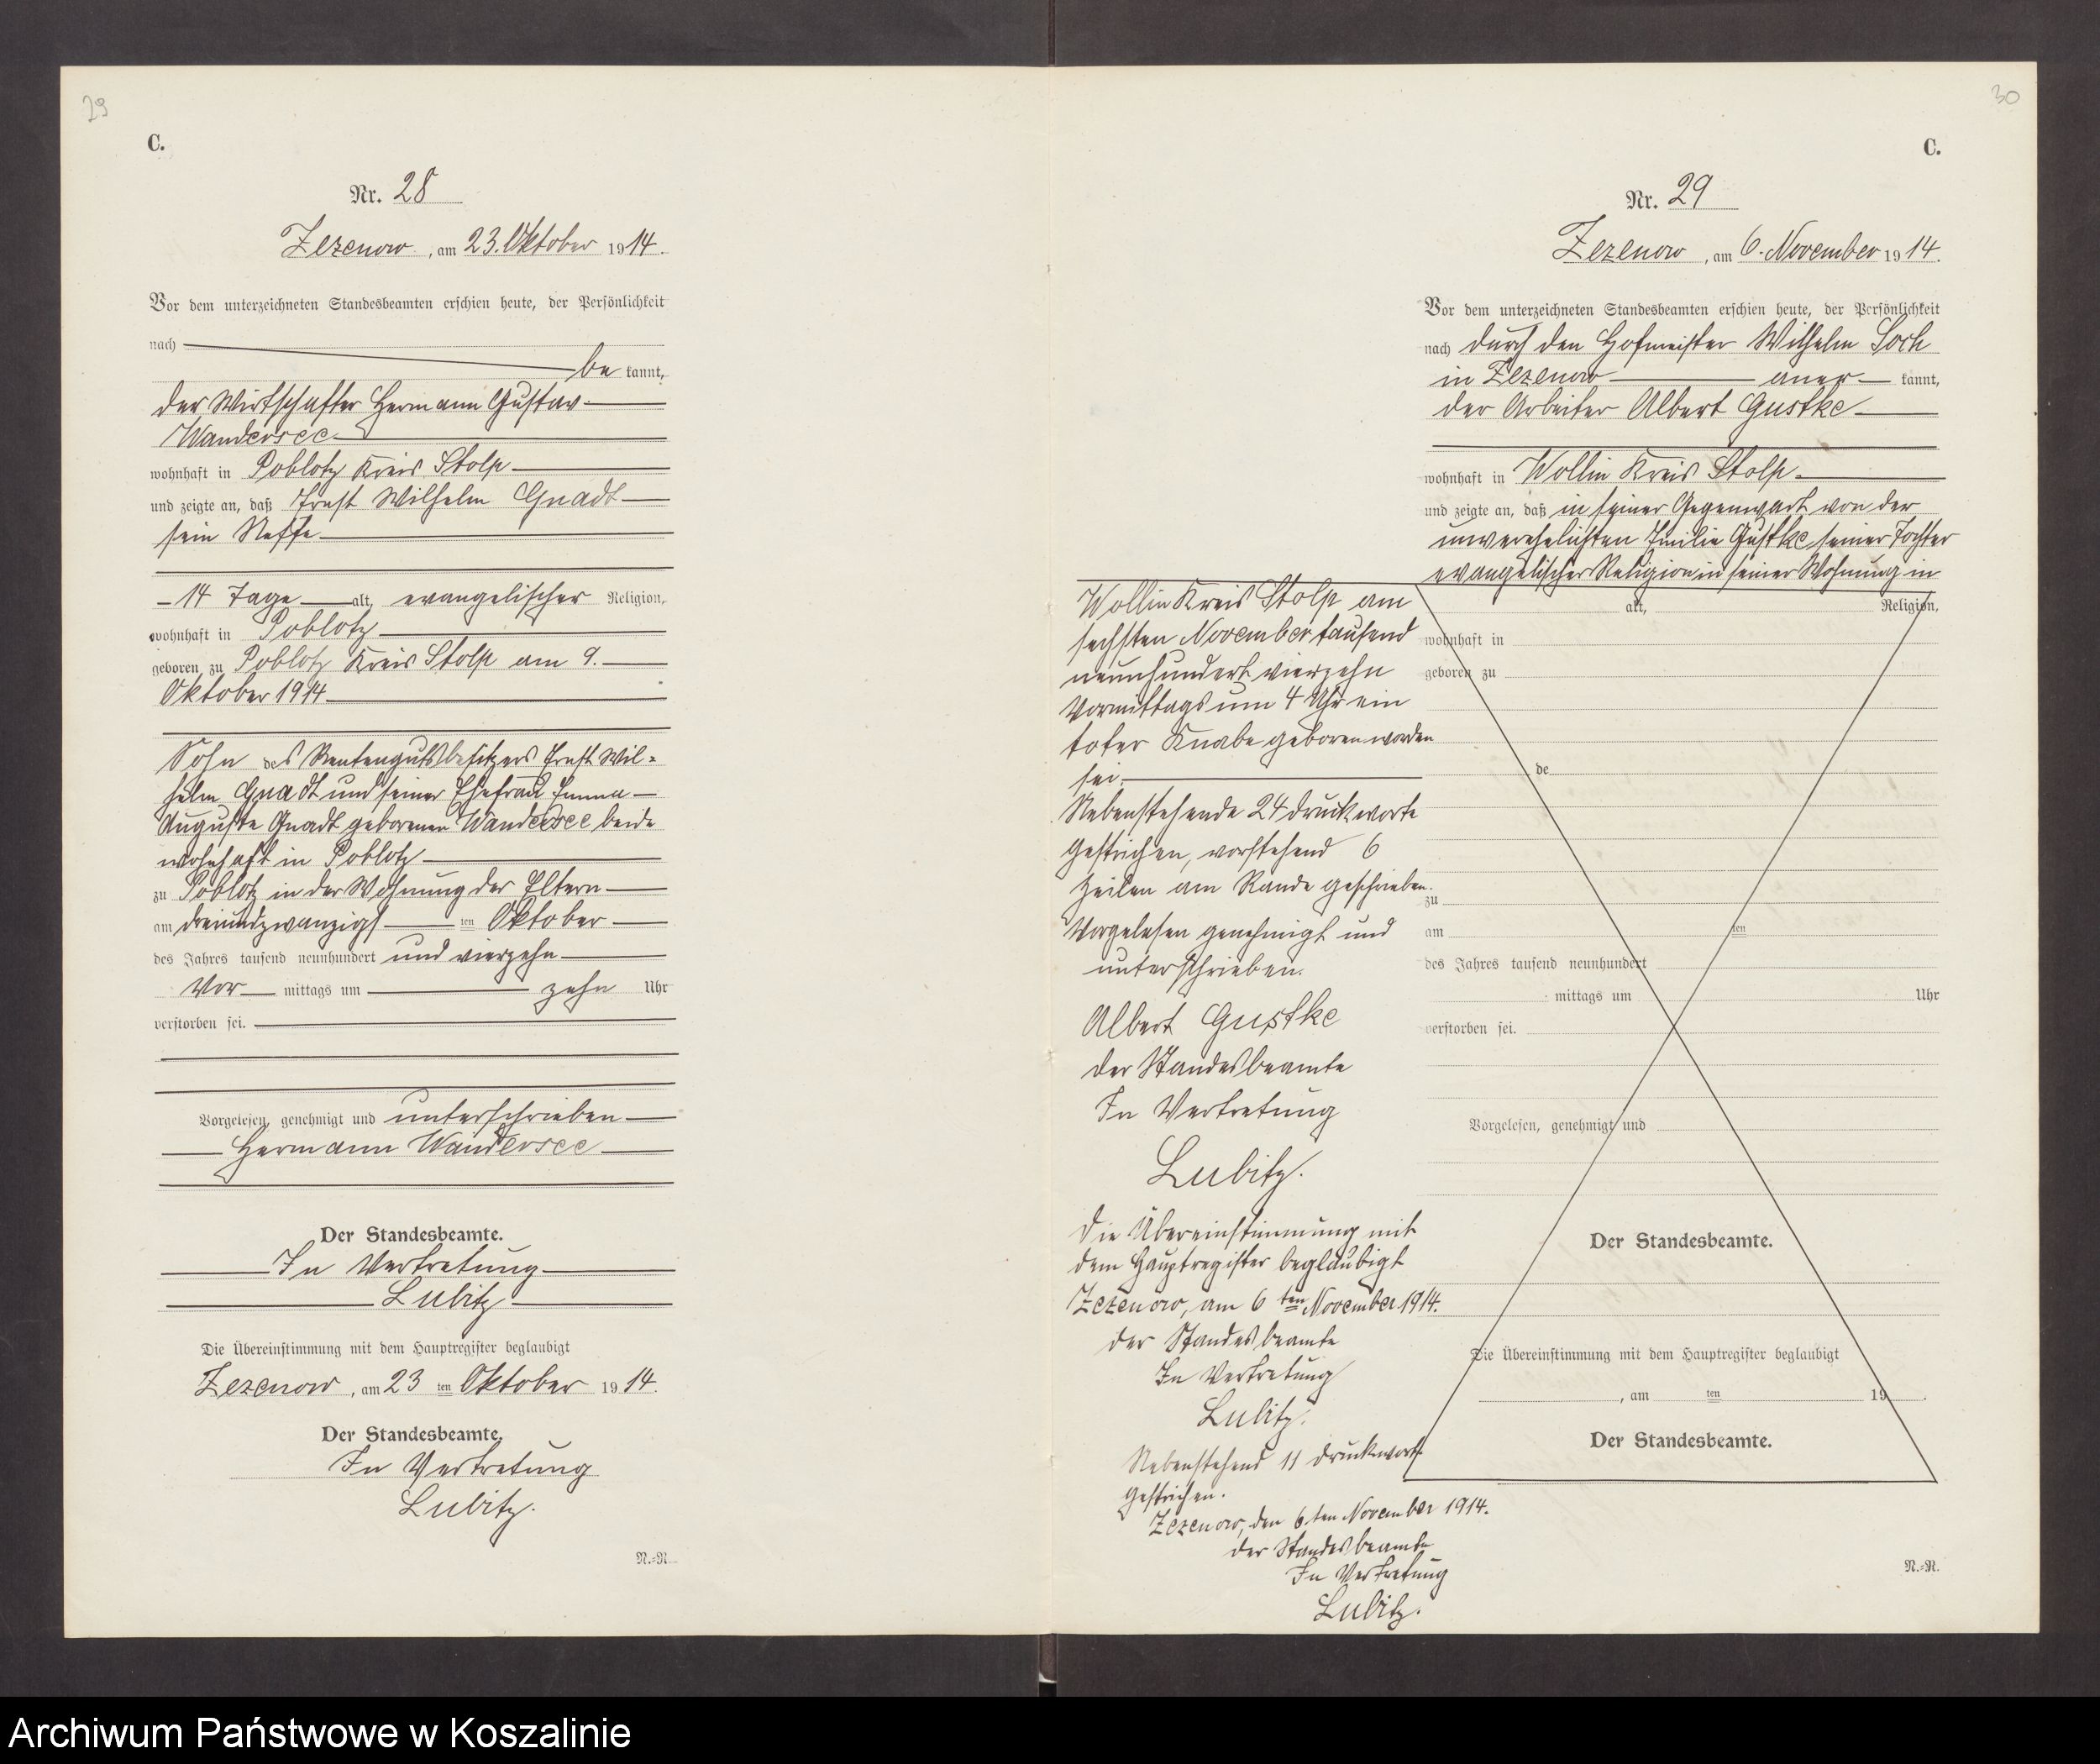 29
C.
Nr. 28
Zezenow, am 23. Oktober 1914.
Vor dem unterzeichneten Standesbeamten erschien heute, der Persönlichkeit
nach
be kannt,
der Wirtschafter Hermann Gustav
Wandersee
wohnhaft in Poblotz Kreis Stolp
und zeigte an, daß Ernst Wilhelm Gnadt
sein Neffe
14 Tage alt, evangelischer Religion,
wohnhaft in Poblotz
geboren zu Poblotz Kreis Stolp am 9.
Oktober 1914
Sohn des Rentengutsbesitzers Ernst Wil=
helm Gnadt und seiner Ehefrau Emma
Auguste Gnadt geborenen Wandersee beide
wohnhaft in Poblotz
zu Poblotz in der Wohnung der Eltern
am dreiundzwanzigst ten Oktober
des Jahres tausend neunhundert und vierzehn
Vor mittags um zehn Uhr
verstorben sei.
Vorgelesen, genehmigt und unterschrieben
Hermann Wandersee
Der Standesbeamte.
In Vertretung
Lubitz
Die Übereinstimmung mit dem Hauptregister beglaubigt
Zezenow, am 23 ten Oktober 1914.
Der Standesbeamte.
In Vertretung
Lubitz.
N.=R.
30
C.
Nr. 29
Zezenow, am 6. November 1914.
Vor dem unterzeichneten Standesbeamten erschien heute, der Persönlichkeit
nach durch den Hofmeister Wilhelm
in Zezenow aner kannt,
der Arbeiter Albert Gustke
wohnhaft in Wollin Kreis Stolp.
und zeigte an, daß in seiner Gegenwart von der
unverehelichten Emilie Gustke seiner Tochter
evangelischer Religion in seiner Wohnung in
Wollin Kreis Stolp am
sechsten November tausend
neunhundert vierzehn
Vormittags um 4 Uhr ein
toter Knabe geboren worden
sei.
Nebenstehende 24 Druckworte
gestrichen, vorstehend 6
Zeilen am Rande geschrieben.
Vorgelesen genehmigt und
unterschrieben.
Albert Gustke
der Standesbeamte
In Vertretung
Lubitz.
die Übereinstimmung mit
dem Hauptregister beglaubigt
Zezenow, am 6 ten November 1914.
der Standesbeamte
In Vertretung
Lubitz.
Nebenstehend 11 Druckwort
gestrichen.
Zezenow, den 6ten November 1914.
der Standesbeamte
In Vertretung
Lubitz.
alt, Religion,
wohnhaft in
geboren zu
de
zu
am ten
des Jahres tausend neunhundert
mittags um Uhr
verstorben sei.
Vorgelesen, genehmigt und
Der Standesbeamte.
Die Übereinstimmung mit dem Hauptregister beglaubigt
, am ten 19 .
Der Standesbeamte.
N.=R.
Archiwum Państwowe w Koszalinie